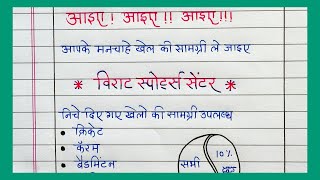 आइए! आइए!! आइए!!!
आपके मनचाहे खेल की सामग्री ले जाइए
* विराट स्पोर्ट्स सेंटर *
निचे दिए गए खेलों की सामग्री उपलब्ध
• क्रिकेट
• कैरम
• बैडमिंटन
सभी
10%